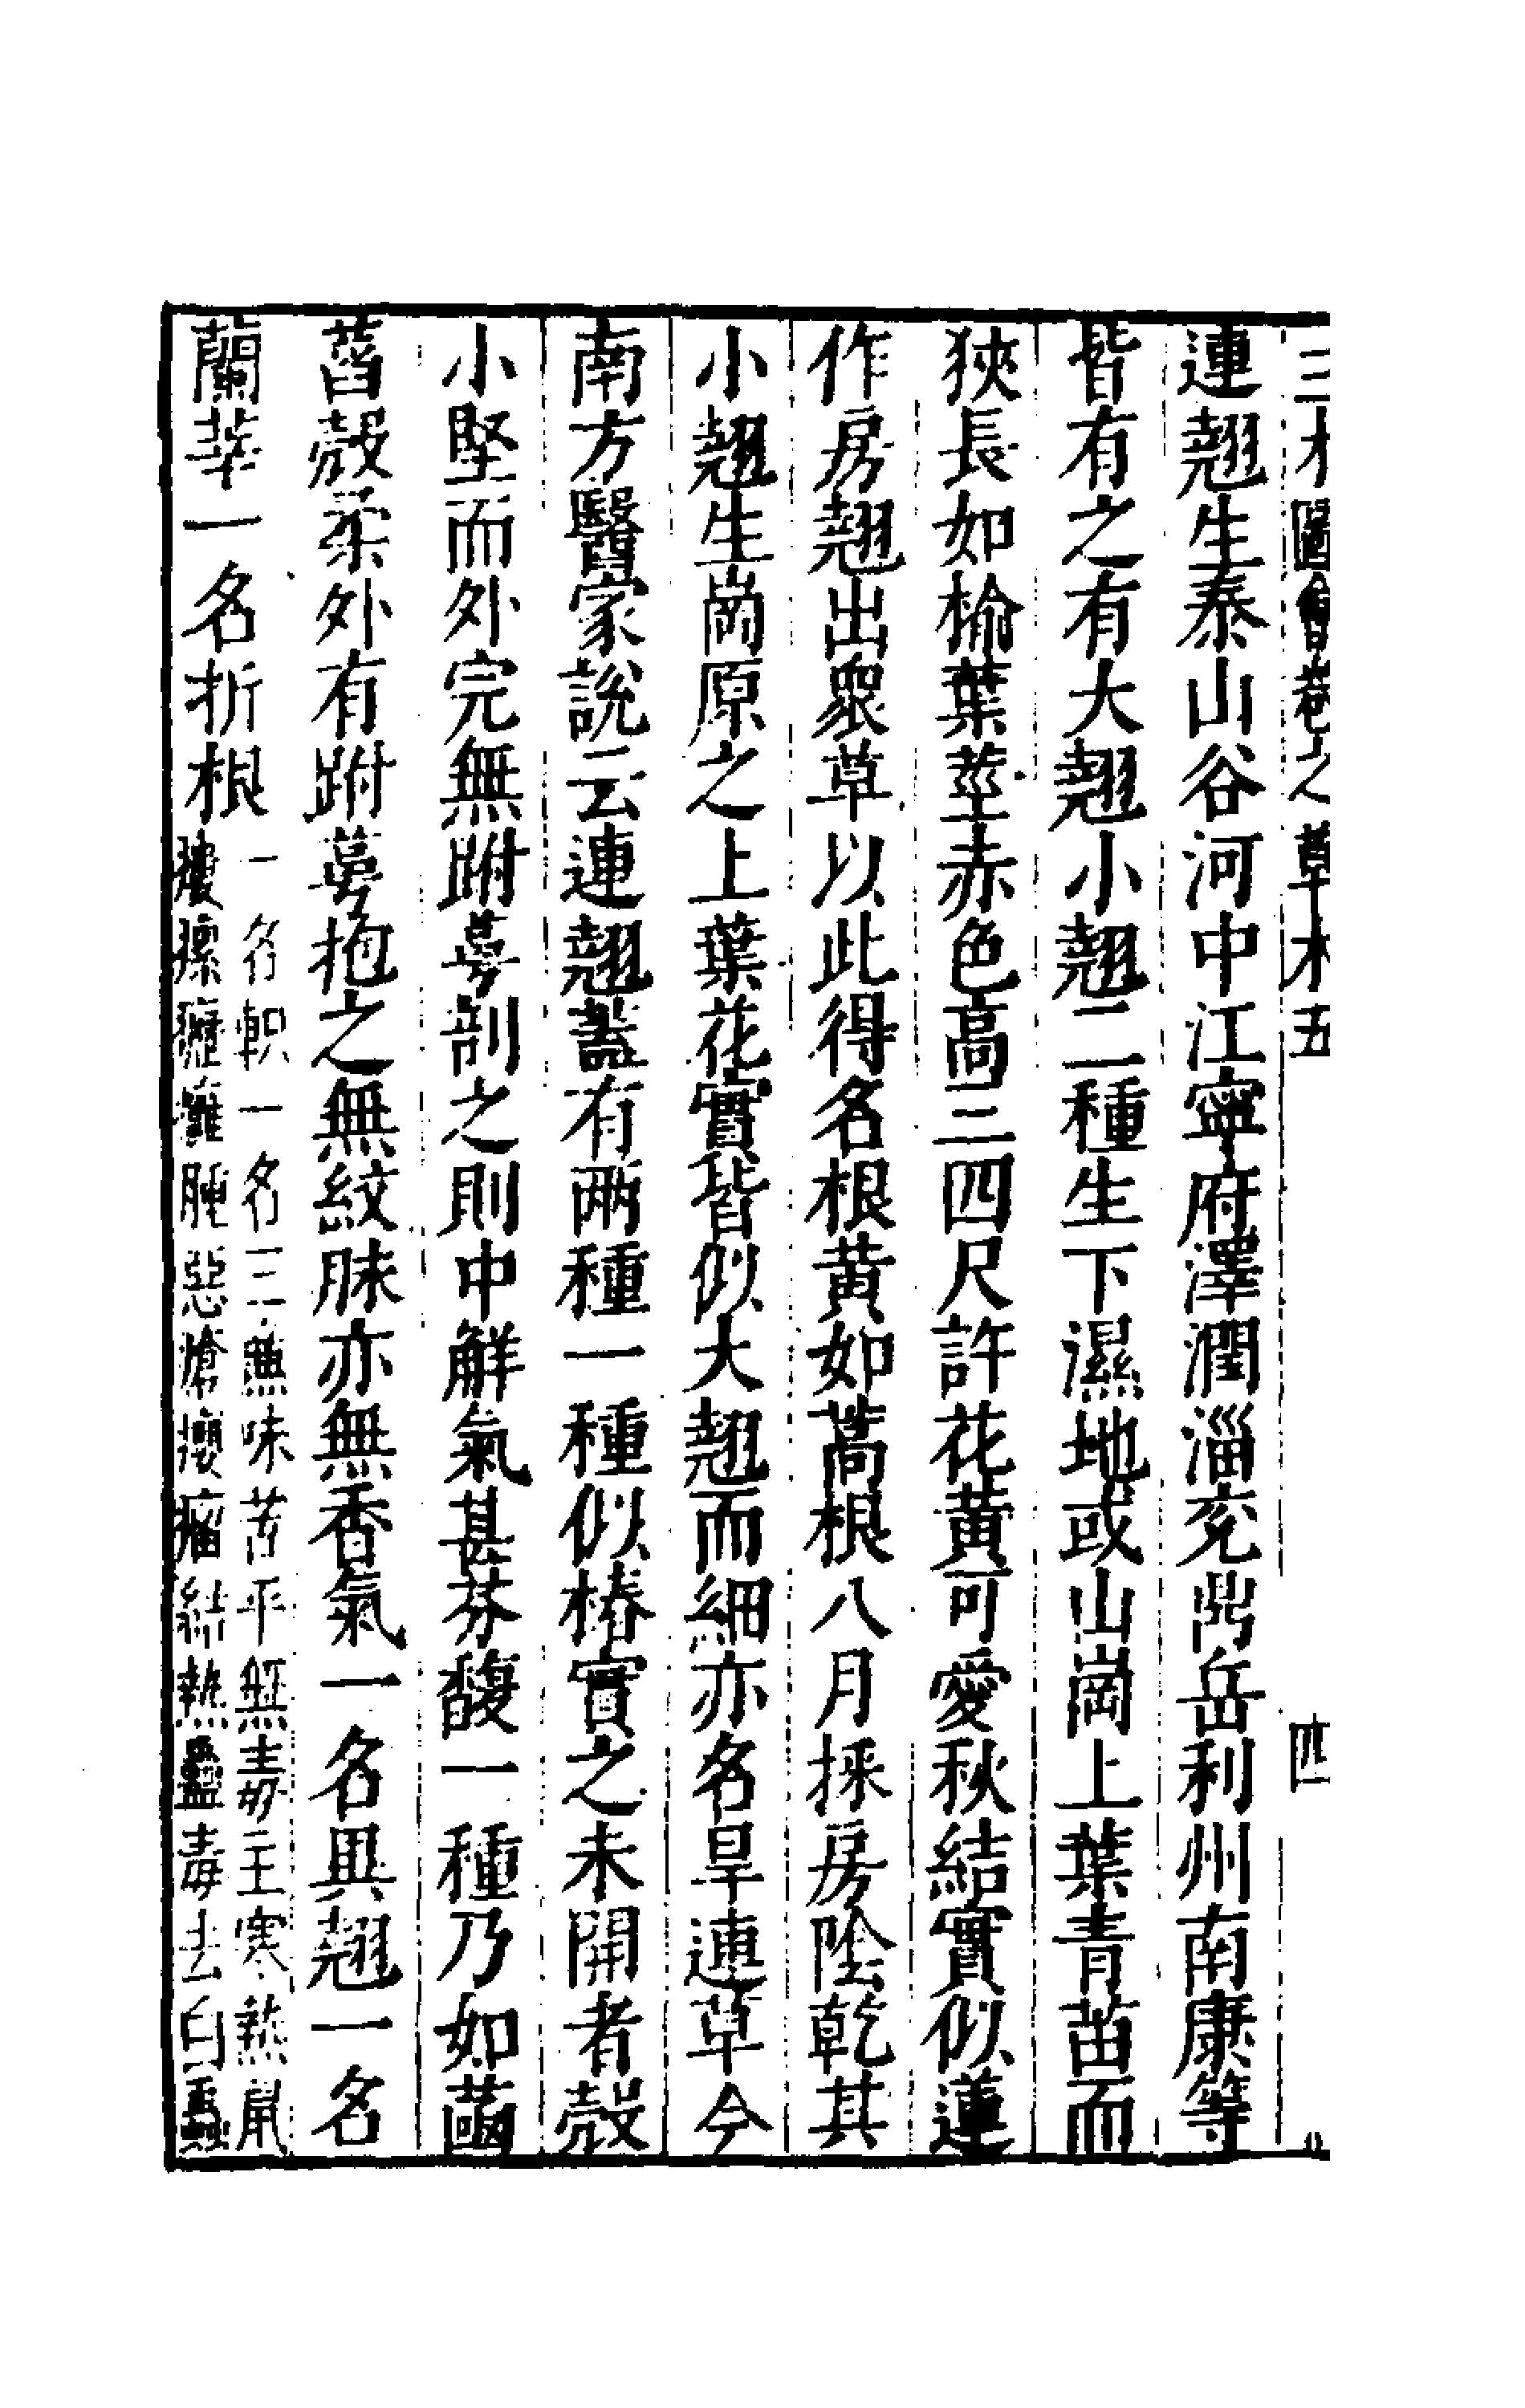 三才圖會卷之草木五　四
連翹生泰山谷河中江寧府澤潤淄兖鼎岳利州南康等
皆有之有大翹小翹二種生下濕地或山崗上葉青苗而
狹長如榆葉莖赤色高三四尺許花黃可愛秋結實似蓮
作房翹出衆草以此得名根黃如蒿根八月採房陰乾其
小翹生崗原之上葉花實皆似大翹而細亦名旱連草今
南方醫家說云連翹蓋有兩種一種似椿實之未開者殼
小堅而外完無跗萼剖之則中解氣甚芬馥一種乃如菡
萏殼柔外有跗萼抱之無紋脉亦無香氣一名異翹一名
蘭華一名折根
一名軹一名三亷味苦平無毒主寒熱鼠
瘻瘰癧癰腫惡瘡癭瘤結熱蠱毒去白蟲